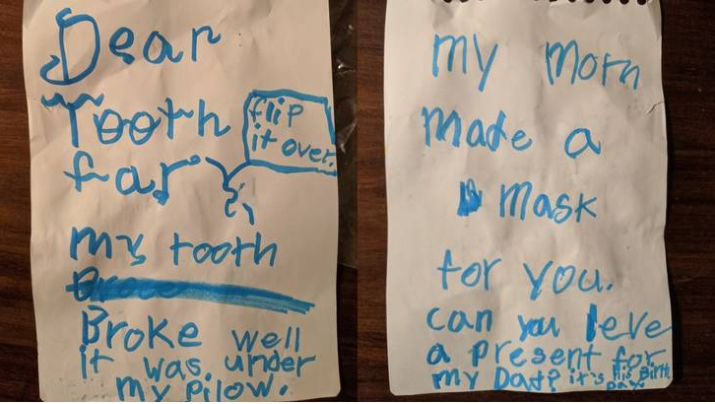 Dear
Tooth
fary
flip
it over.
my tooth
Broke well
it was under
my pilow.
my mom
made a
mask
for you.
can you leve
a present for
my Dad? it's his Birth
Day